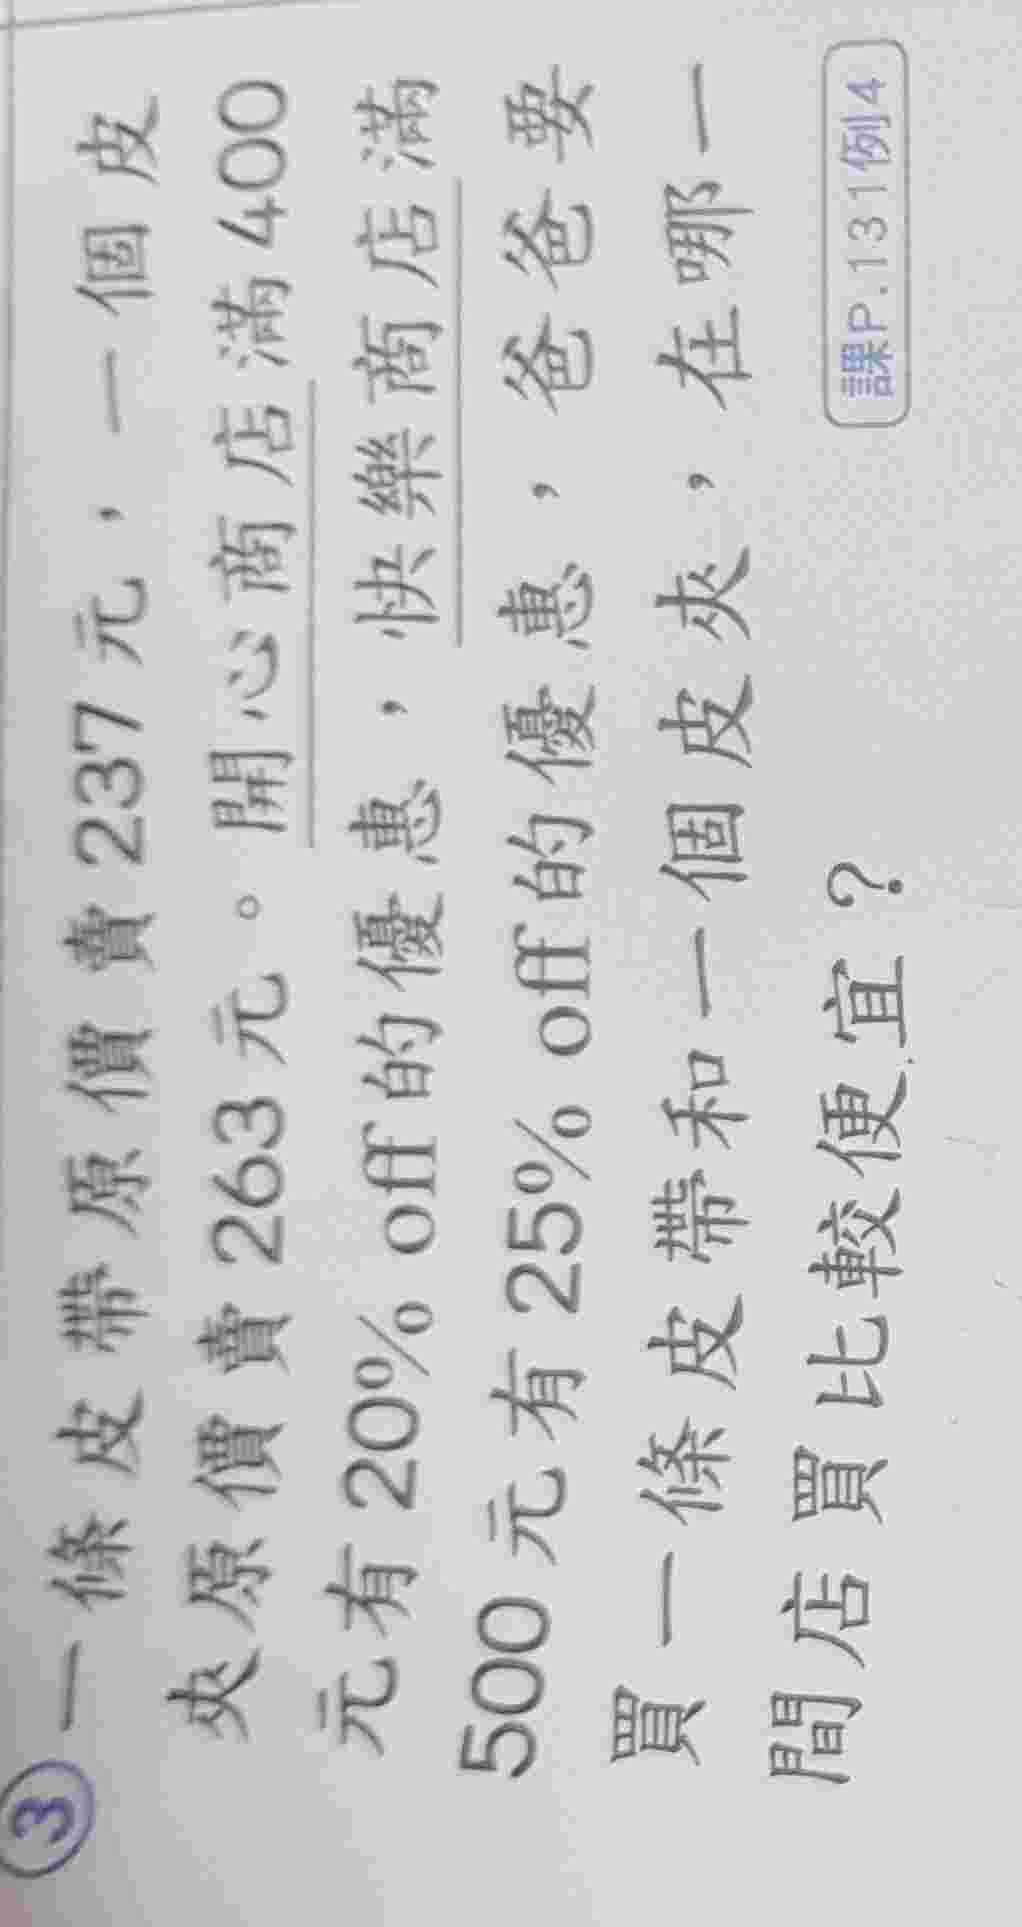 ③ 一條皮帶原價賣237元，一個皮
夾原價賣263元。開心商店滿400
元有20% off的優惠，快樂商店滿
500元有25% off的優惠，爸爸要
買一條皮帶和一個皮夾，在哪一
間店買比較便宜？
課P.131例4